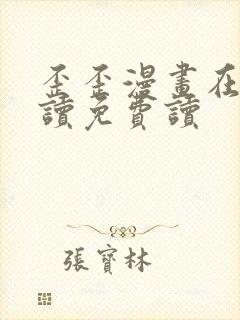 歪歪漫畫在
讀免費讀
張寶林